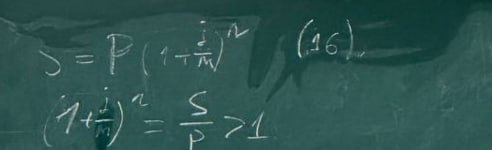 S = P(1+j/m)^n (16).
(1+j/m)^n = S/P > 1